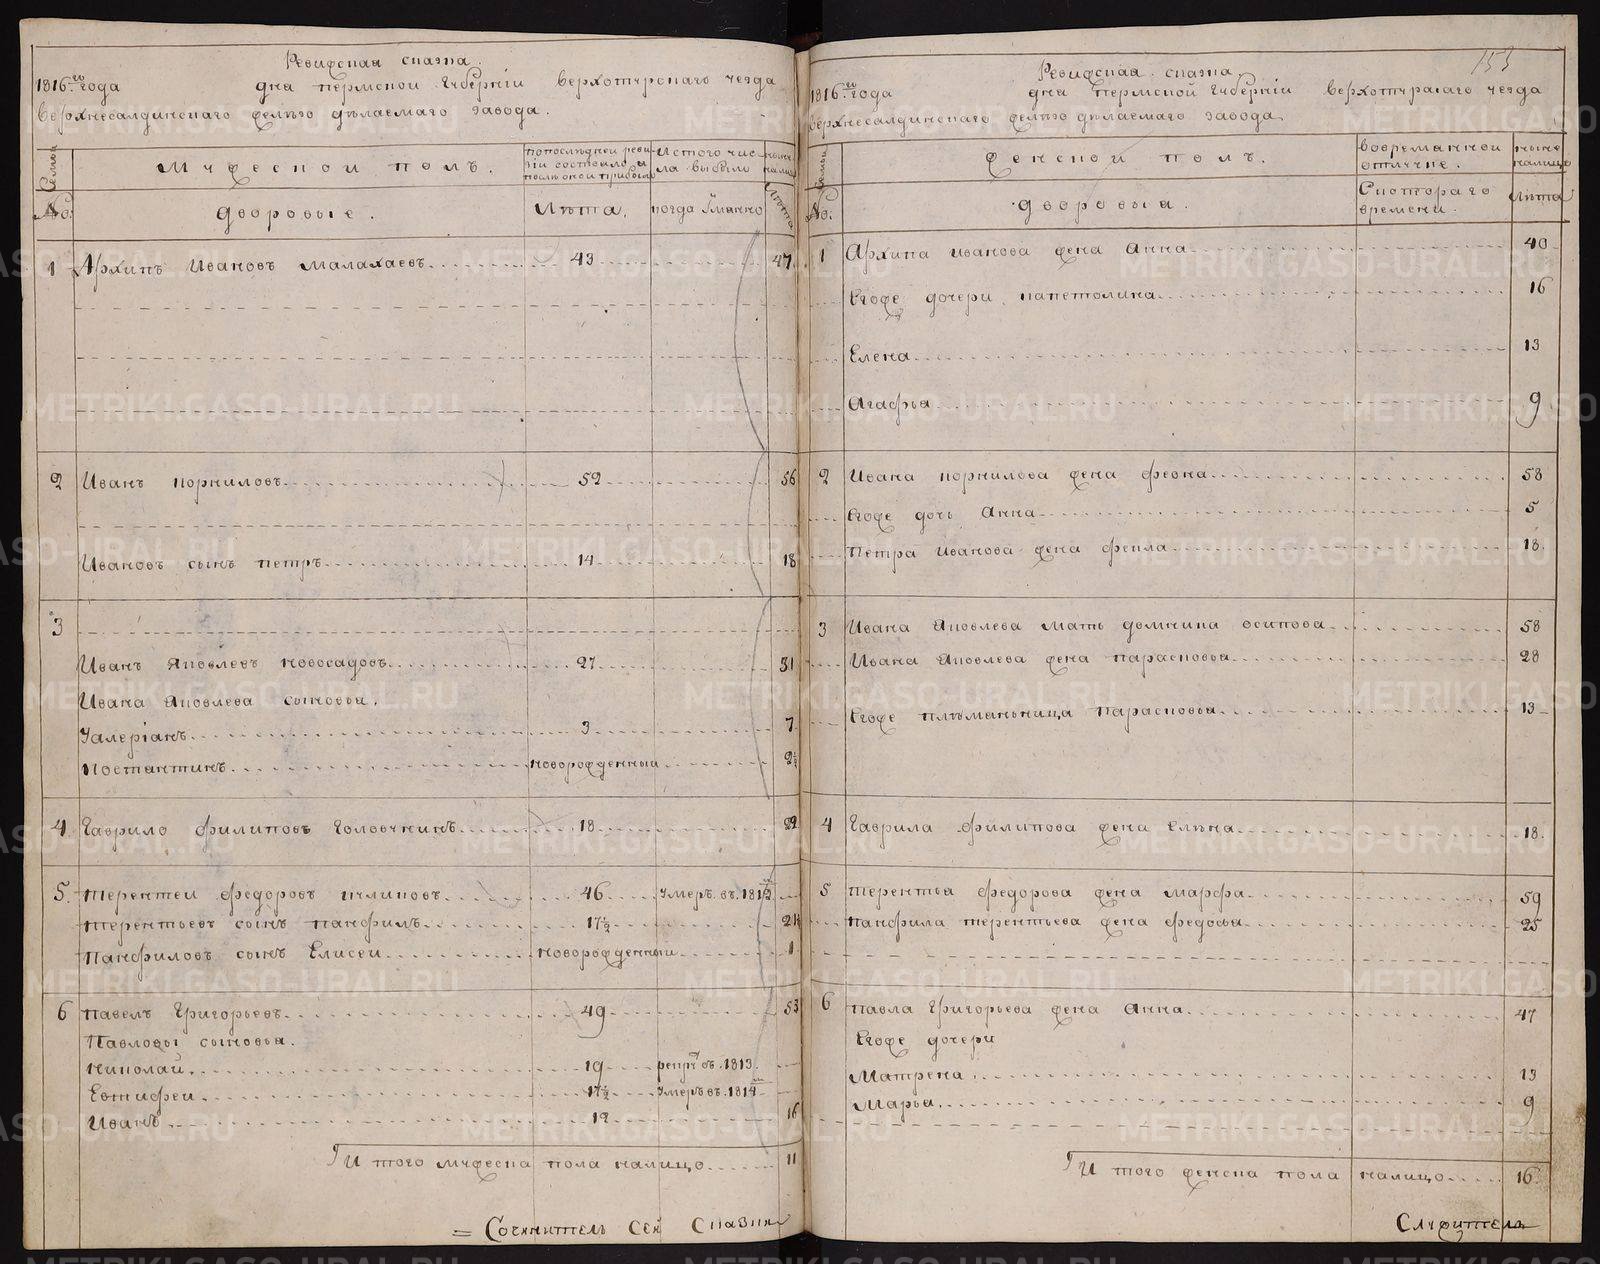 Ревижская сказка.
1816го года дня пермской Губернiи верхотурскаго уезда
верхнесалдинскаго желѣзо дѣлаемаго завода.
Семьи
Мужеской полъ.
попослѣдней реви
зiи состояло и
послѣ оной прибыло
Истого чис-
ла выбыло
ныне
налицо
№
дворовые.
Лѣта.
когда Имянно
Лѣта
1 Архипъ Ивановъ Малахаевъ 43 47
2 Иванъ корниловъ 52 56
Ивановъ сынъ петръ 14 18
3
Иванъ Яковлевъ новосадовъ 27 31
Ивана Яковлева сыновья.
Валерiанъ 3 7
Костантинъ новорожденный 2½
4 Гаврило филиповъ Головчкинъ 18 22
5. терентеи федоровъ 46 Умеръ въ 1812м
терентьевъ сынъ панфилъ 17½ 21½
панфиловъ сынъ Елисеи новорожденный 1
6 павелъ Григорьевъ 49 53
Павловы сыновья.
николай 19 рекрут въ 1813.
Евтифеи 17½ Умеръ въ 1814м
Иванъ 12 16
И того мужеска пола налицо 11
= Сочинитель сей Сказки
153
Ревижская сказка,
1816го года дня пермской Губернiи верхотурскаго уезда
верхнесалдинскаго желѣзо дѣлаемаго завода
Семьи
женской полъ.
вовременной
отлучке.
ныне
налицо
№
дворовыя.
Скотораго
времени.
Лѣта
1 Архипа иванова жена Анна 40
Егоже дочери капетолина 16
Елена 13
Агафья 9
2 Ивана корнилова жена феона 58
Егоже дочь Анна 5
Петра иванова жена фекла 18.
3 Ивана Яковлева мать домникиа осипова 58
Ивана Яковлева жена парасковья 28
Егоже плѣмяньница парасковья 13
4 Гаврила филипова жена Елѣна 18.
5 терентья федорова жена марфа 59
панфила терентьева жена федосья 25
6 павла Григорьева жена Анна 47
Егоже дочери
Матрена 13
Марья 9
И того женска пола налицо 16
Служитель
METRIKI.GASO-URAL.RU